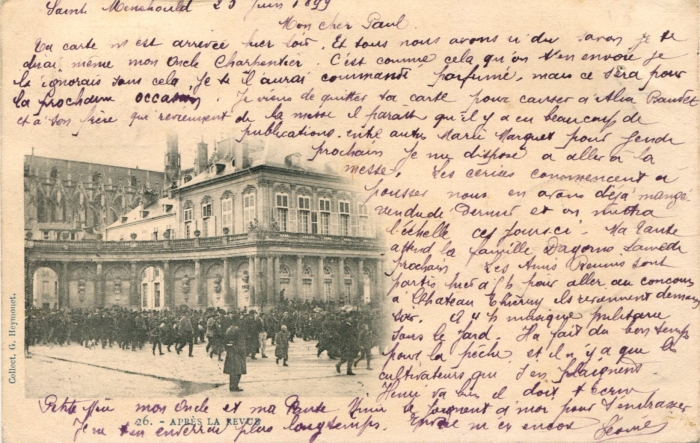 Sainte Menehould 25 juin 1899
Mon cher Paul.
Ta carte ns est arrivée hier soir. Et tous nous avons ri du savon je te
dirai même mon Oncle Charpentier. C'est comme cela qu'on t'en envoie je
le ignorais sans cela je te l'aurai commandé parfumé, mais ce sera pour
la prochaine occasion. Je viens de quitter ta carte pour causer à
et à son frère qui reviennent de la messe il paraît qu'il y a eu beaucoup de
publications. entre autres Marie Marquet pour jeudi
prochain je me dispose a aller a la
messe. Les cerises commencent a
pousser nous en avons déjà mangé
vendredi dernier et on mettra
l'échelle ces jours-ci. Ma Tante
attend la famille Samedi
prochain Les Amis sont
partis hier à pour aller au concours
a Chateau Thierry ils reviennent demain
soir. il y a musique militaire
sous le jard. Il a fait du bon temps
pour la pêche et il n'y a que les
cultivateurs qui s'en plaignent.
Henri va bien il doit t'écrire
Petite mon Oncle et ma Tante se joignent a moi pour t'embrasser
Je ne t'en enverrai plus longtemps.
26. - APRÈS LA REVUE
Collect. G. Heymonet.